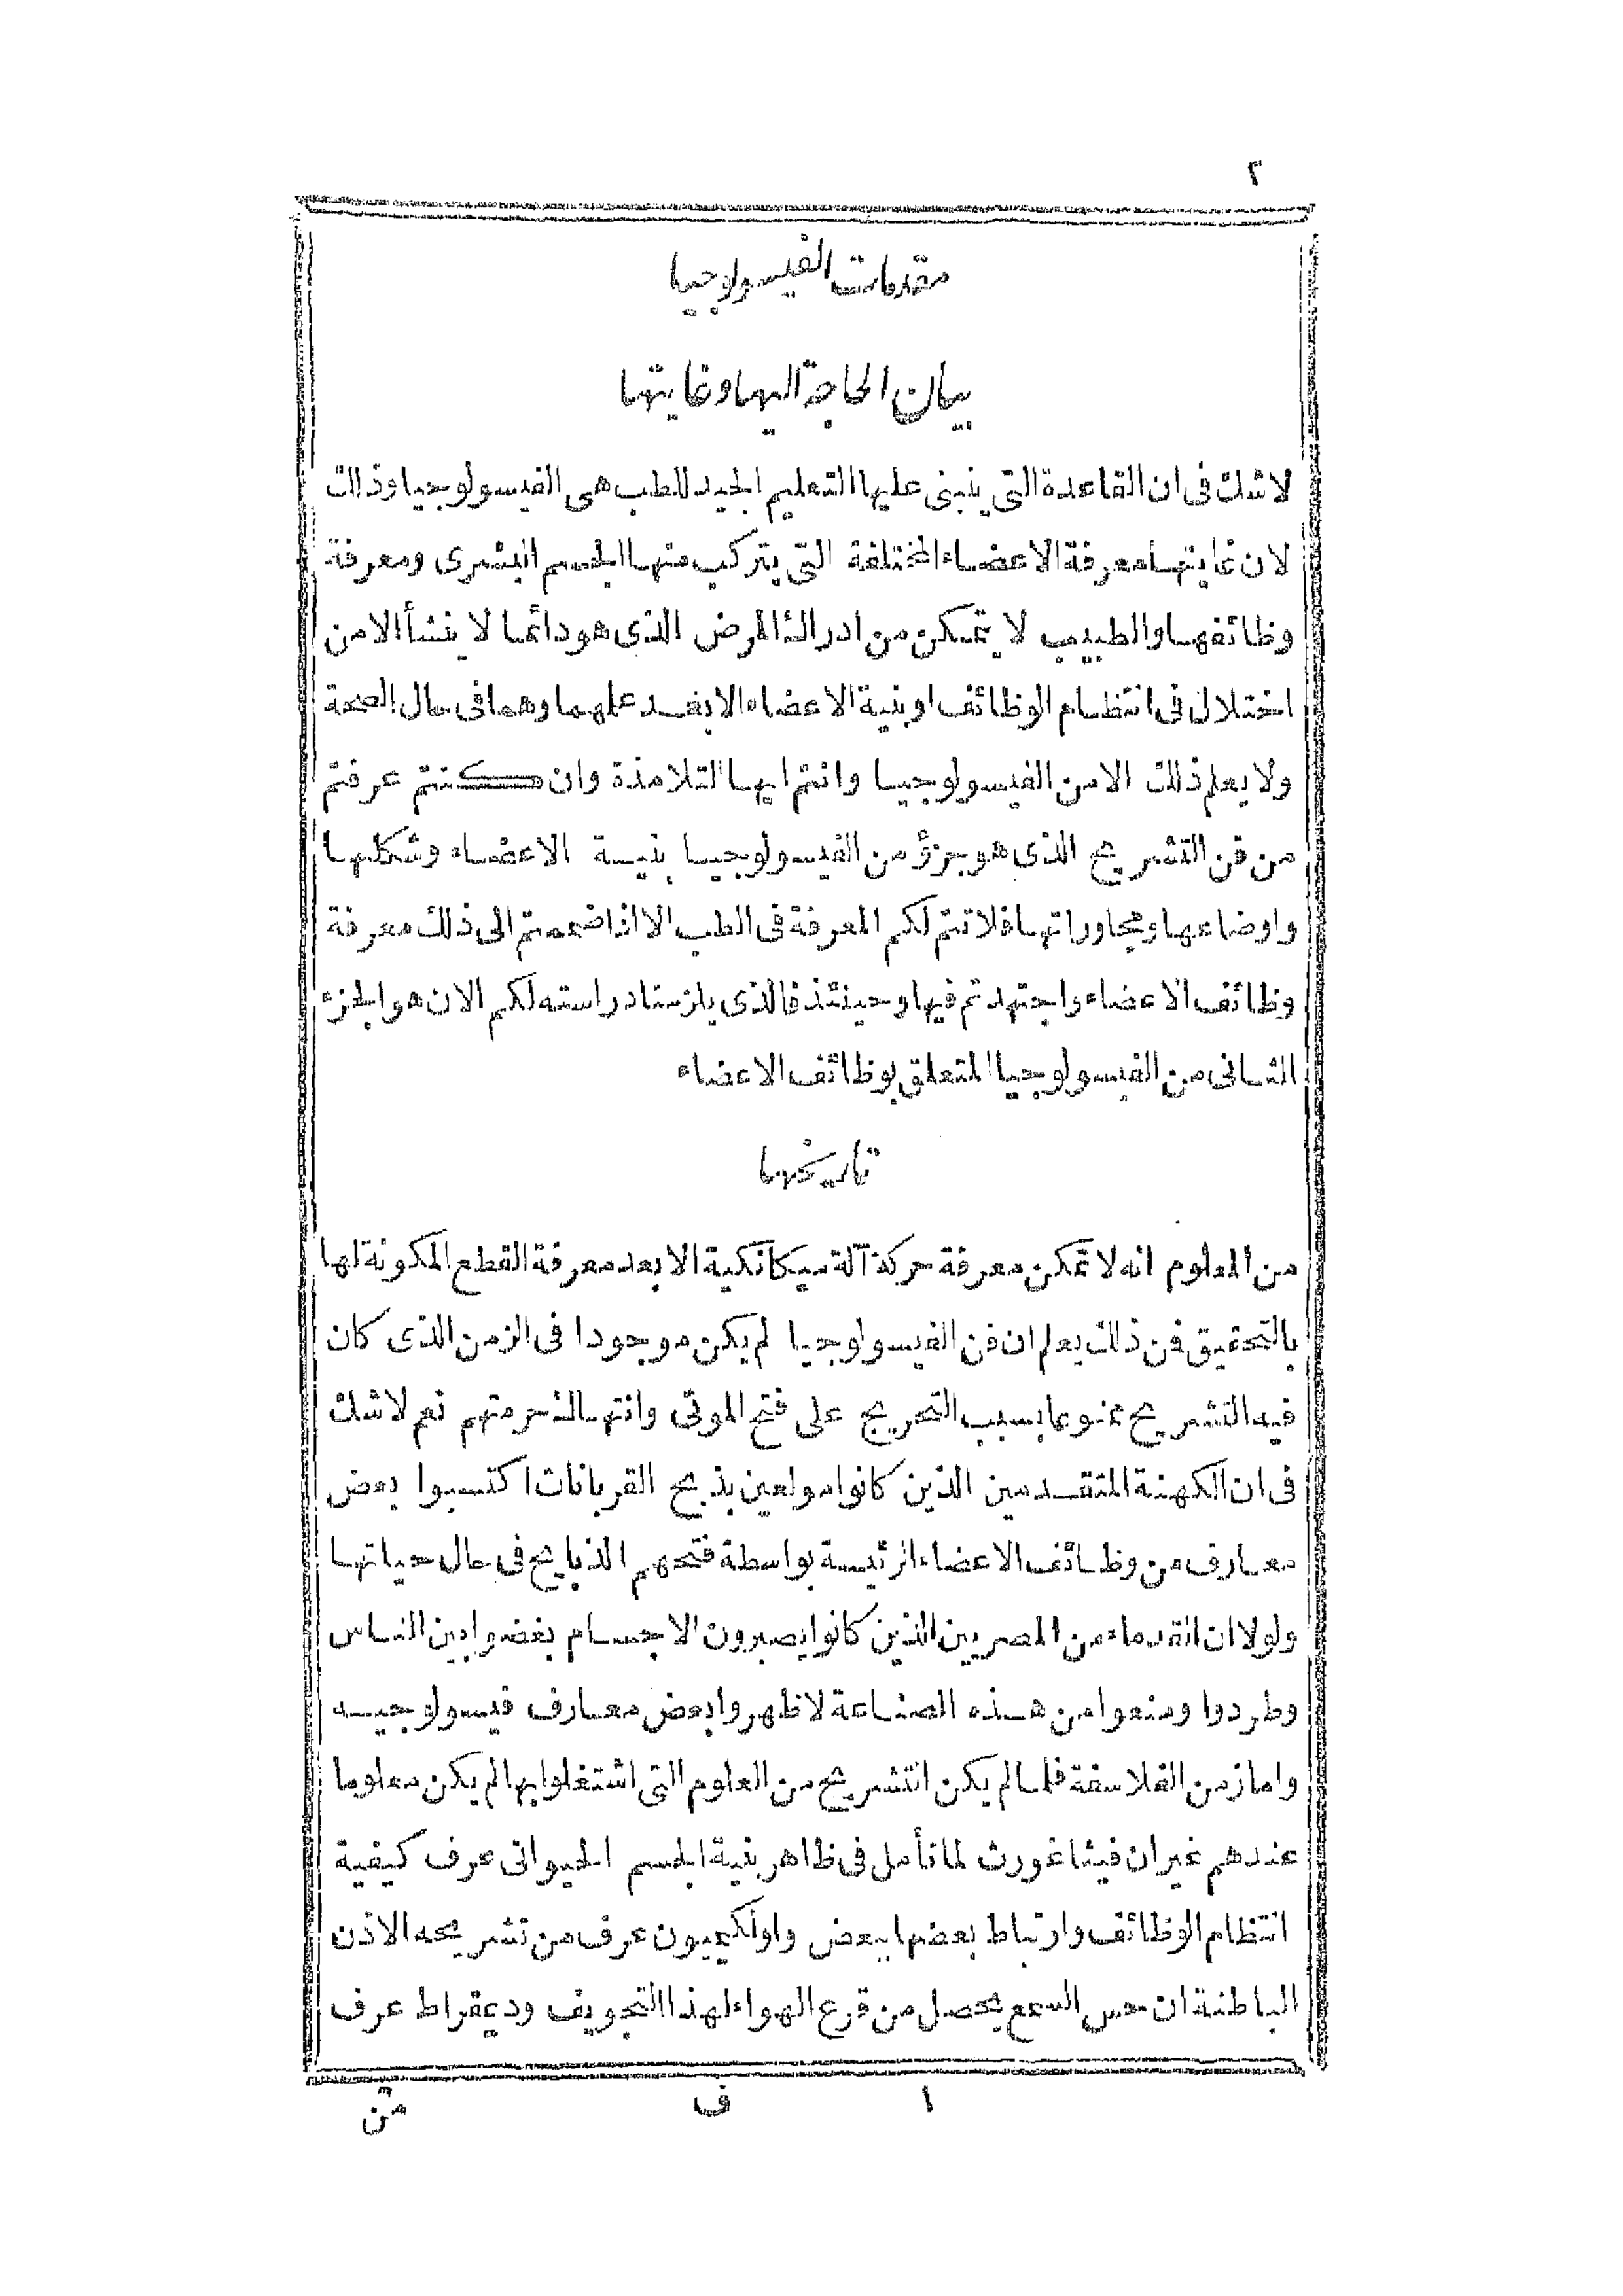 ٢
مقدمات الفيسولوجيا
بيان الحاجة اليها وغايتها
لا شك فى ان القاعدة التى ينبنى عليها التعليم الجيد للطب هى الفيسولوجيا وذلك
لان غايتها معرفة الاعضاء المختلفة التى يتركب منها الجسم البشرى ومعرفة
وظائفها والطبيب لا يتمكن من ادراك المرض الذى هو دائما لا ينشأ الا من
اختلال فى انتظام الوظائف او بنية الاعضاء الا بعد علمهما وهما فى حال الصحة
ولا يعلم ذلك الا من الفيسولوجيا وانتم ايها التلامذة وان كنتم عرفتم
من فن التشريح الذى هو جزؤ من الفيسولوجيا بنية الاعضاء وشكلها
واوضاعها ومجاوراتها فلا تتم لكم المعرفة فى الطب الا اذا ضممتم الى ذلك معرفة
وظائف الاعضاء واجتهدتم فيها وحينئذ فالذى يلزمنا دراسته لكم الان هو الجزء
الثانى من الفيسولوجيا المتعلق بوظائف الاعضاء
تاريخها
من المعلوم انه لا تمكن معرفة حركة آلة ميكانكية الا بعد معرفة القطع المكونة لها
بالتحقيق فمن ذلك يعلم ان فن الفيسولوجيا لم يكن موجودا فى الزمن الذى كان
فيه التشريح ممنوعا بسبب التحريج على فتح الموتى وانتهاك حرمتهم نعم لا شك
فى ان الكهنة المتقدمين الذين كانوا مولعين بذبح القربانات اكتسبوا بعض
معارف من وظائف الاعضاء الرئيسة بواسطة فتحهم الذبايح فى حال حياتها
ولولا ان القدماء من المصريين الذين كانوا يصبرون الاجسام بغضوا بين الناس
وطردوا ومنعوا من هذه الصناعة لاظهروا بعض معارف فيسولوجيه
واما زمن الفلاسفة فلما لم يكن التشريح من العلوم التى اشتغلوا بها لم يكن معلوما
عندهم غير ان فيثاغورث لما تأمل فى ظاهر بنية الجسم الحيوانى عرف كيفية
انتظام الوظائف وارتباط بعضها ببعض واولكميون عرف من تشريحه الاذن
الباطنة ان حس السمع يحصل من قرع الهواء لهذا التجويف وديمقراط عرف
١ ف من